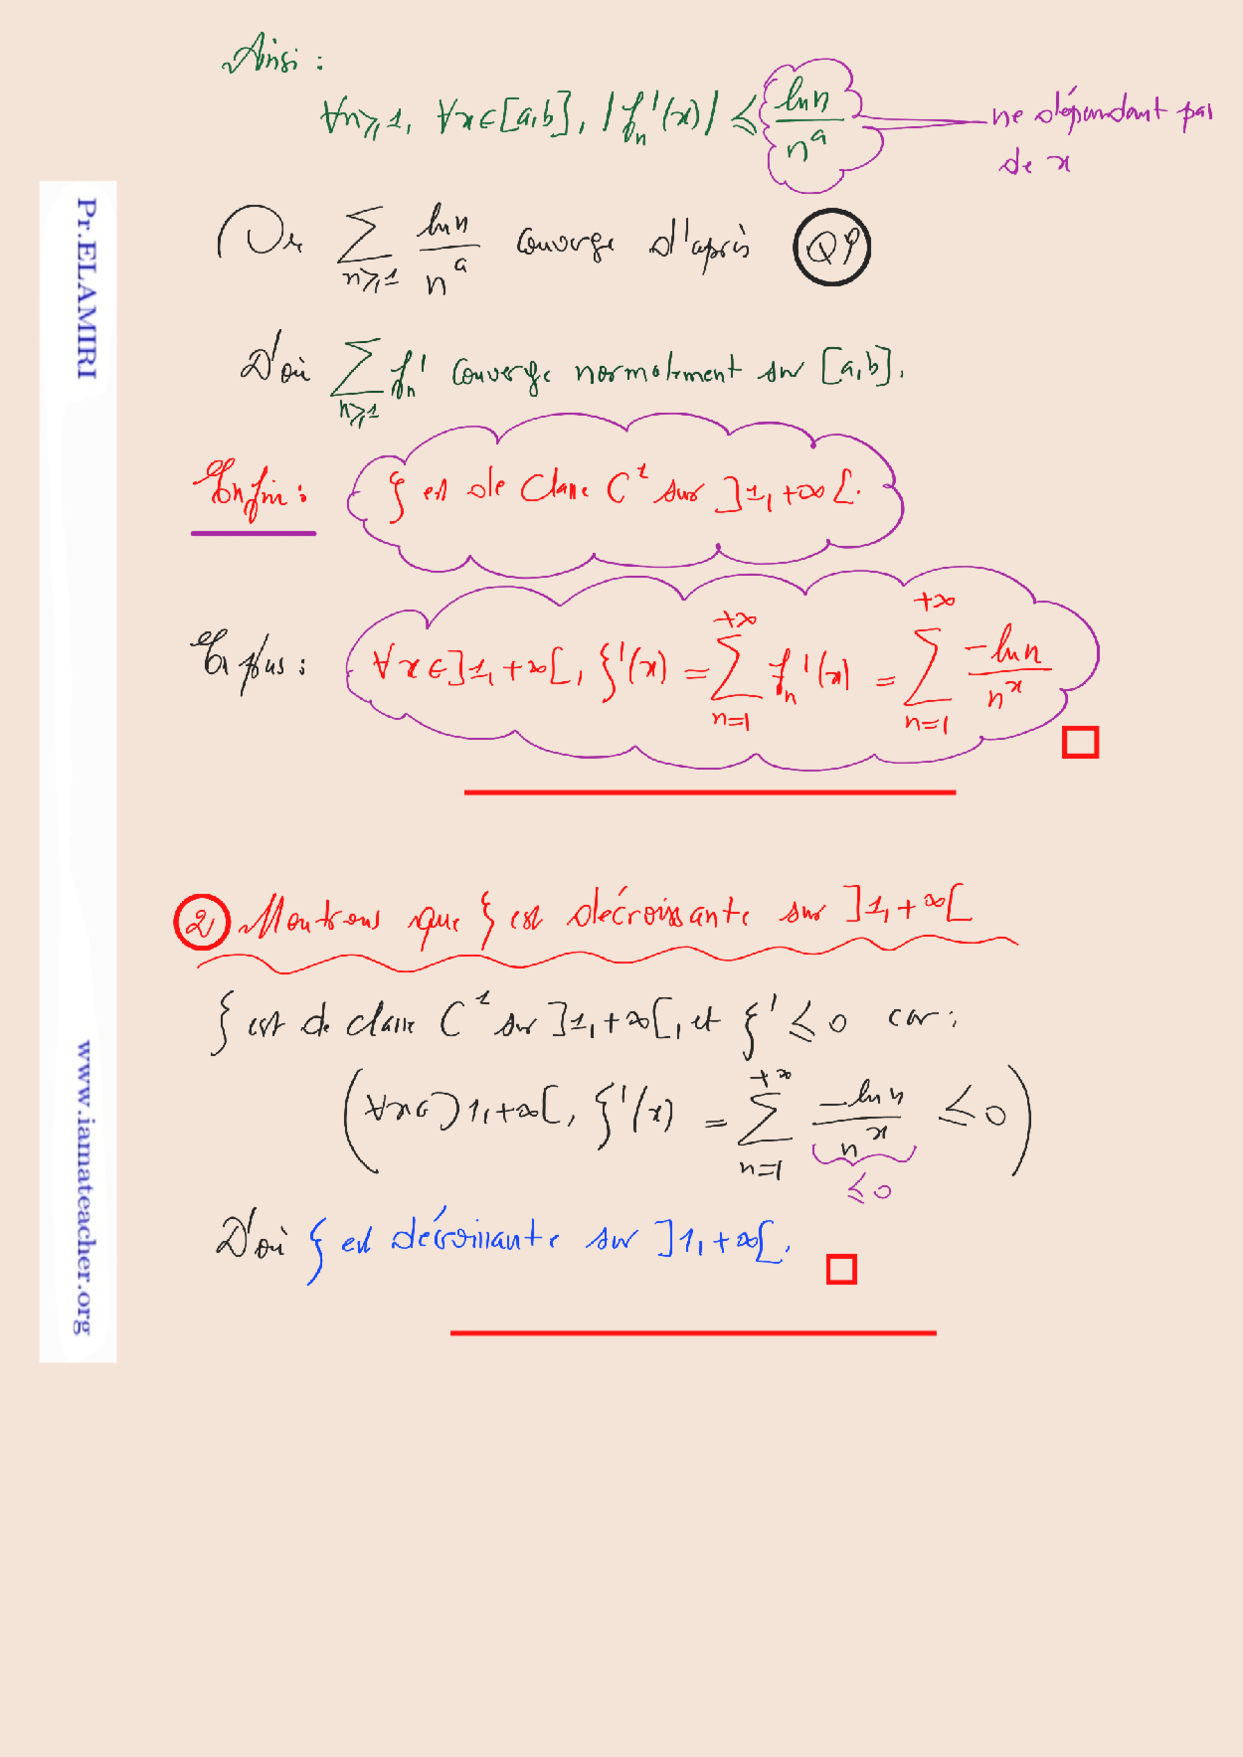 Ainsi :
∀n≥1, ∀x∈[a,b], |fₙ'(x)| ≤ ln n / nᵃ
ne dépendant pas
de x
Or ∑_{n≥1} ln n / nᵃ converge d'après Q9
D'où ∑_{n≥1} fₙ' converge normalement sur [a,b].
Enfin : ξ est de classe C¹ sur ]1,+∞[.
En plus : ∀x∈]1,+∞[, ξ'(x) = ∑_{n=1}^{+∞} fₙ'(x) = ∑_{n=1}^{+∞} -ln n / nˣ
② Montrons que ξ est décroissante sur ]1,+∞[
ξ est de classe C¹ sur ]1,+∞[, et ξ' ≤ 0 car :
(∀x∈]1,+∞[, ξ'(x) = ∑_{n=1}^{+∞} -ln n / nˣ ≤ 0)
≤ 0
D'où ξ est décroissante sur ]1,+∞[.
Pr.ELAMIRI
www.iamateacher.org